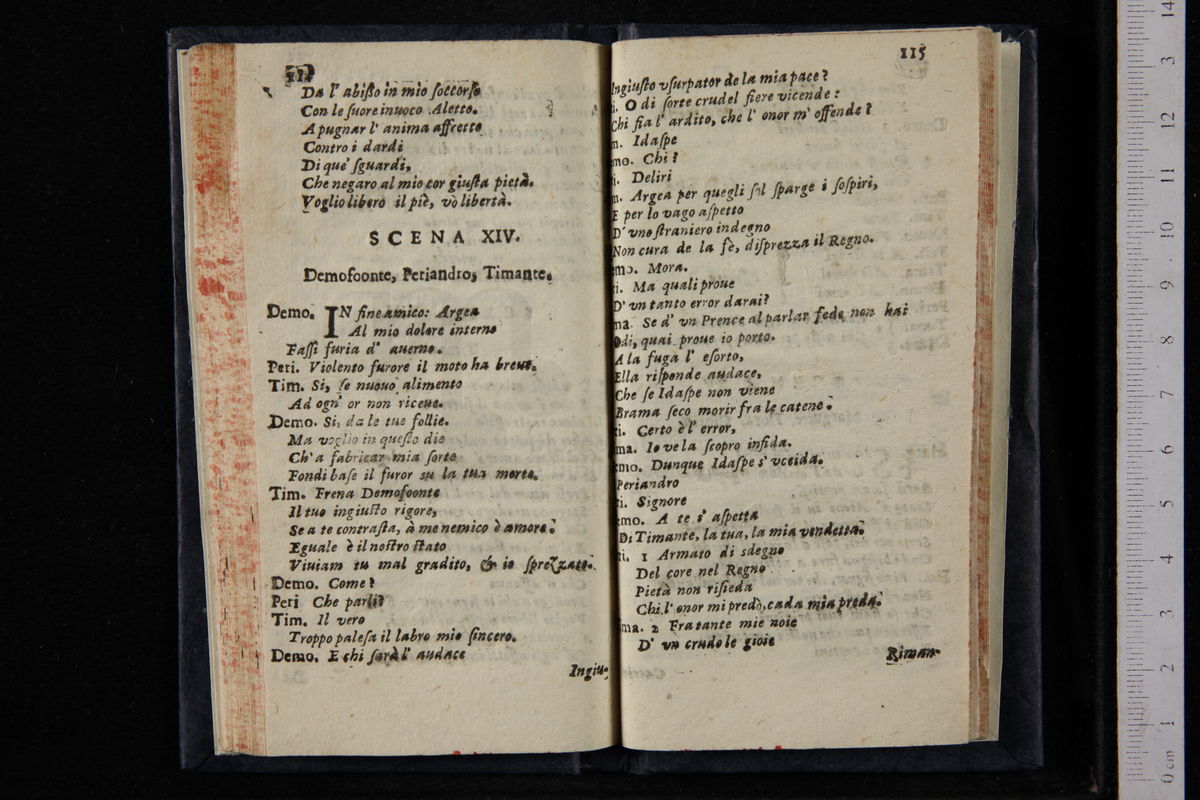 Da l' abißo in mio ſoccorſo
Con le ſuore inuoco Aletto.
A pugnar l' anima affretto
Contro i dardi
Di que' ſguardi,
Che negaro al mio cor giuſta pietà.
Voglio libero il piè, vò libertà.
SCENA XIV.
Demofoonte, Periandro, Timante.
Demo. IN fine amico: Argea
Al mio dolore interno
Faſſi furia d' auerno.
Peri. Violento furore il moto ha breue.
Tim. Si, ſe nuouo alimento
Ad ogn' or non riceue.
Demo. Si, da le tue follie.
Ma voglio in queſto die
Ch' a fabricar mia ſorte
Fondi baſe il furor su la tua morte.
Tim. Frena Demofoonte
Il tuo ingiuſto rigore,
Se a te contraſta, à me nemico è amore:
Eguale è il noſtro ſtato
Viuiam tu mal gradito, & io ſprezzato.
Demo. Come?
Peri Che parli?
Tim. Il vero
Troppo paleſa il labro mio ſincero.
Demo. E chi ſarà l' audace
Ingiu-
115
Ingiuſto vſurpator de la mia pace?
i. O di ſorte crudel fiere vicende:
Chi fia l' ardito, che l' onor m' offende?
m. Idaſpe
mo. Chi?
i. Deliri
m. Argea per quegli ſol ſparge i ſoſpiri,
E per lo vago aſpetto
D' vno ſtraniero indegno
Non cura de la fè, diſprezza il Regno.
mo. Mora.
ri. Ma quali proue
D' vn tanto error darai?
ma. Se d' vn Prence al parlar fede non hai
Odi, quai proue io porto.
A la fuga l' eſorto,
Ella riſponde audace,
Che ſe Idaſpe non viene
Brama ſeco morir fra le catene:
ri. Certo è l' error,
ma. Io ve la ſcopro infida.
mo. Dunque Idaſpe s' vccida.
Periandro
ri. Signore
emo. A te s' aſpetta
Di Timante, la tua, la mia vendetta.
ri. 1 Armato di sdegno
Del core nel Regno
Pietà non riſieda
Chi l' onor mi predò, cada mia preda.
ma. 2 Fra tante mie noie
D' vn crudo le gioie
Riman-